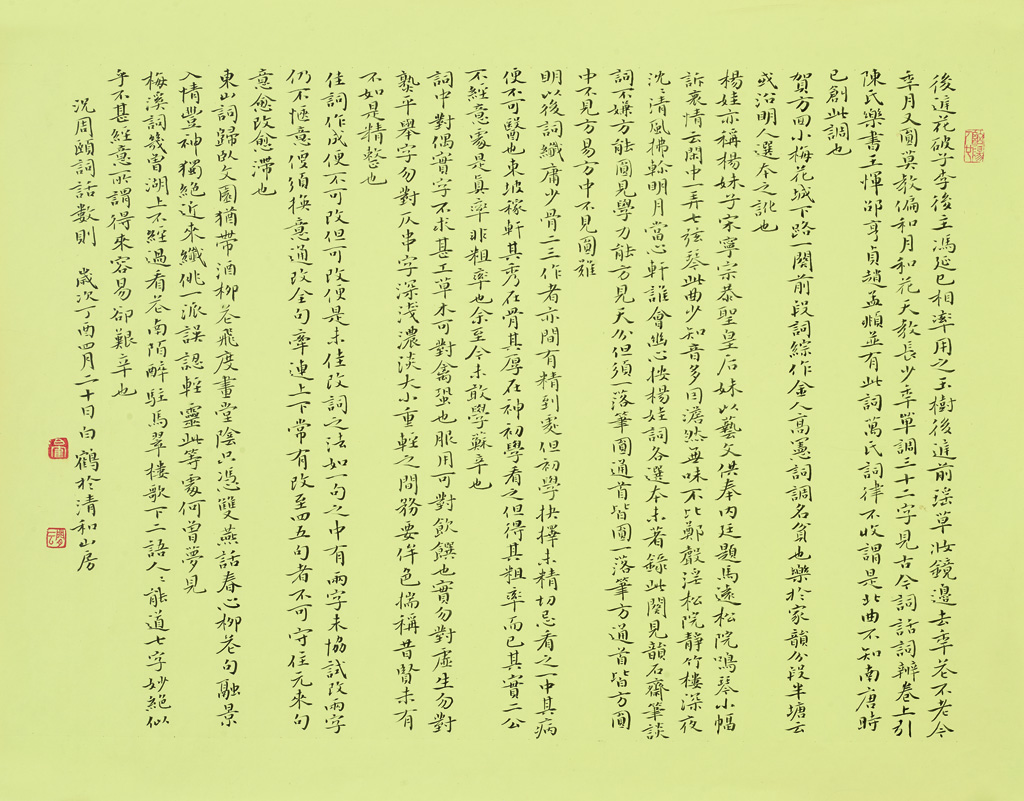 後進花破子李後主馮延巳相率用之玉樹後進前瑶草妝鏡邊去年花不老今
年月又圓莫教偏和月和花天教長少年單調三十二字見古今詞話詞辨卷上引
陳氏樂書王惲邵亨貞趙孟頫並有此詞萬氏詞律不收謂是北曲不知南唐時
已創此調也
賀方回小梅花城下路一闋前段詞綜作金人高憲詞調名貧也樂於家韻分段半塘云
或沿明人選本之訛也
楊娃亦稱楊妹子宋寧宗恭聖皇后妹以藝文供奉内廷題馬遠松院鳴琴小幅
訴衷情云閑中一弄七弦琴此曲少知音多因澹然無味不比鄭聲淫松院静竹樓深夜
沈沈清風拂軫明月當心軒誰會幽心按楊娃詞各選本未著録此闋見韻石齋筆談
詞不嫌方能圓見學力能方見天分但須一落筆圓通首皆圓一落筆方通首皆方圓
中不見方易方中不見圓難
明以後詞纖庸少骨二三作者亦間有精到處但初學抉擇未精切忌看之一中其病
便不可醫也東坡稼軒其秀在骨其厚在神初學看之但得其粗率而已其實二公
不經意處是真率非粗率也余至今未敢學蘇辛也
詞中對偶實字不求甚工草木可對禽蟲也服用可對飲饌也實勿對虚生勿對
熟平舉字勿對仄串字深淺濃淡大小重輕之間務要侔色揣稱昔賢未有
不如是精整也
佳詞作成便不可改但可改便是未佳改詞之法如一句之中有兩字未協試改兩字
仍不愜意便須換意通改全句牽連上下常有改至四五句者不可守住元來句
意愈改愈滯也
東山詞歸卧文園猶帶酒柳花飛度畫堂陰只憑雙燕話春心柳花句融景
入情豐神獨絶近來纖佻一派誤認輕靈此等處何曾夢見
梅溪詞幾曾湖上不經過看花南陌醉駐馬翠樓歌下二語人人能道七字妙絶似
乎不甚經意所謂得來容易卻艱辛也
況周頤詞話數則　歲次丁酉四月二十日白鶴於清和山房